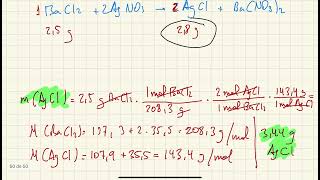 1 BaCl₂ + 2AgNO₃ → 2AgCl + Ba(NO₃)₂
2,5 g 2,8 g
m(AgCl) = 2,5 g BaCl₂ · 1 mol BaCl₂ / 208,3 g · 2 mol AgCl / 1 mol BaCl₂ · 143,4 g / 1 mol AgCl =
M(BaCl₂) = 137,3 + 2·35,5 = 208,3 g/mol 3,44 g
M(AgCl) = 107,9 + 35,5 = 143,4 g/mol AgCl
50 de 50